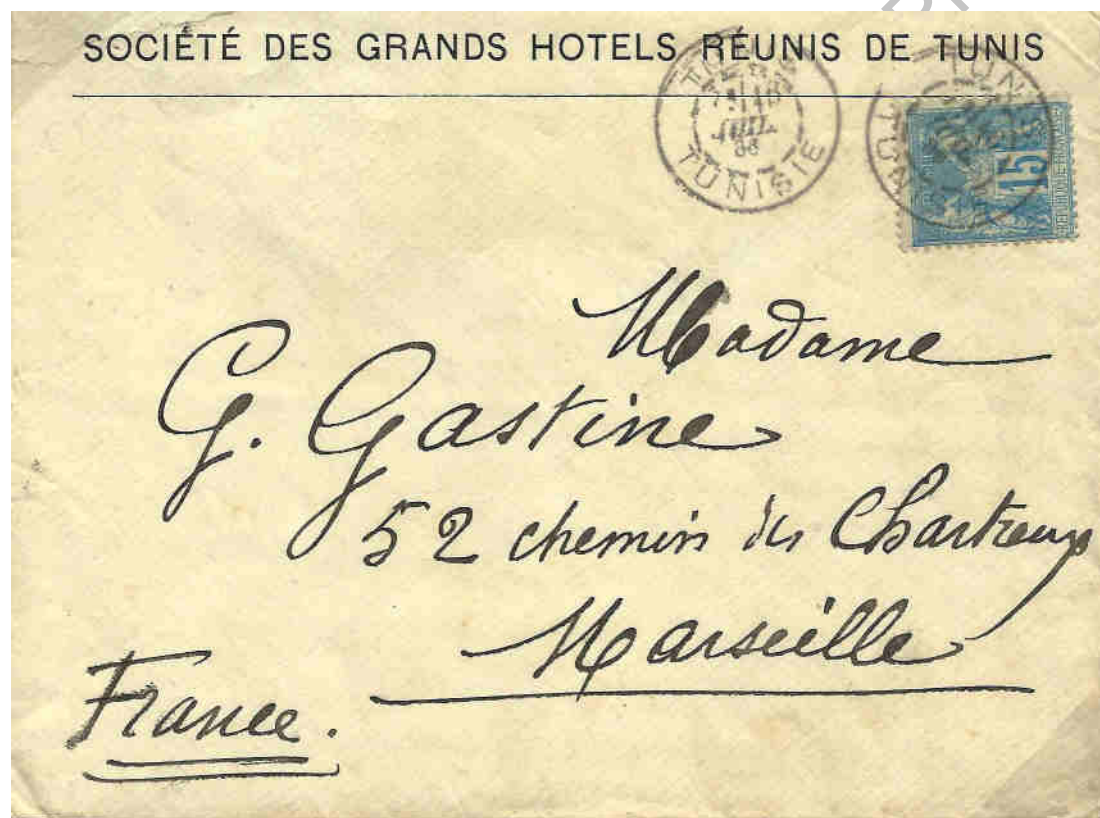 SOCIÉTÉ DES GRANDS HOTELS RÉUNIS DE TUNIS
TUNIS
JUIL.
88
TUNISIE
15
Madame
G. Gastine
52 chemin des Chartreux
Marseille
France.